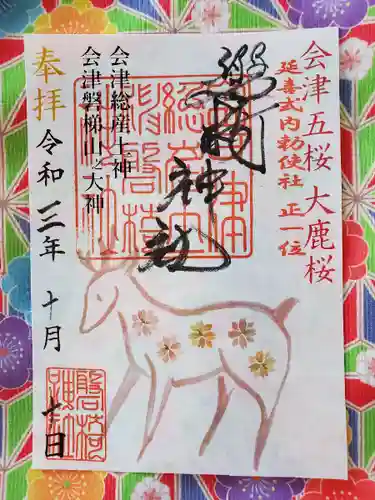 会津五桜 大鹿桜
延喜式内勅使社 正一位
磐椅神社
会津総産土神
会津磐梯山之大神
奉拝
令和三年 十月 十日